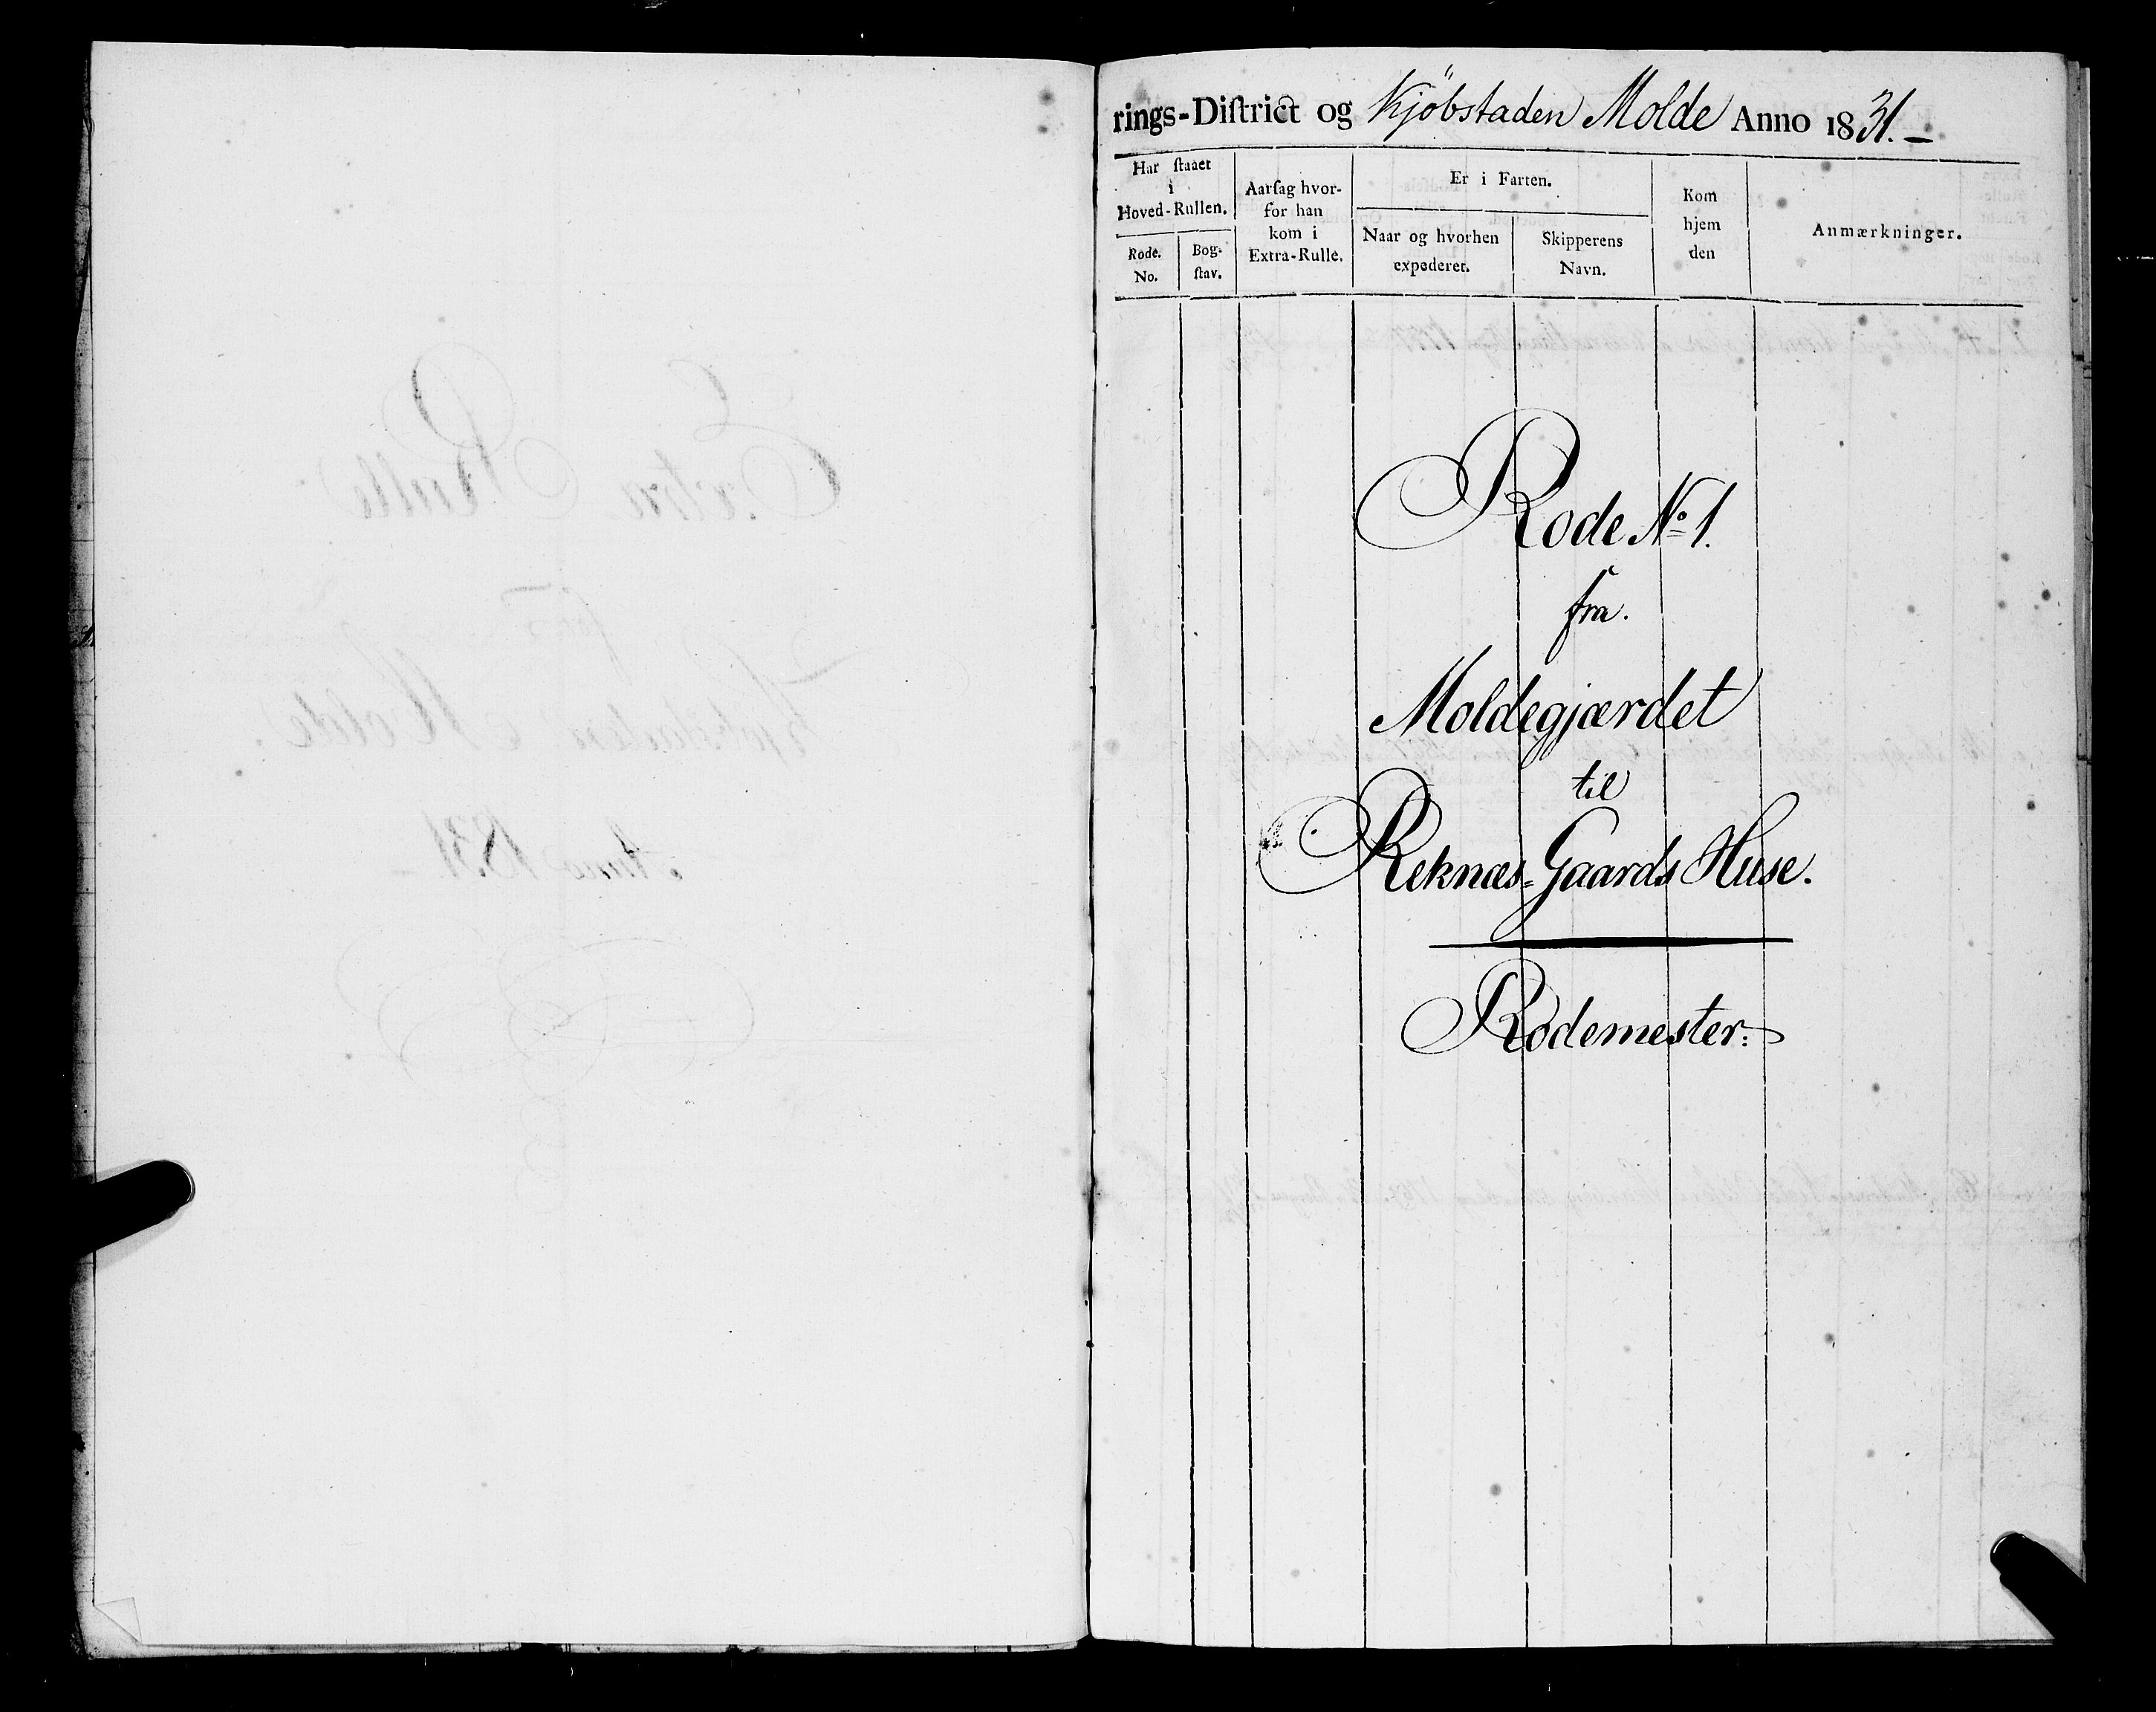 rings-Diſtrict og Kjöbstaden Molde Anno 1831. –
Har ſtaaet
i
Hoved-Rullen.
Rode.
No.
Bog-
ſtav.
Aarſag hvor-
for han
kom i
Extra-Rulle.
Er i Farten.
Naar og hvorhen
expederet.
Skipperens
Navn.
Kom
hjem
den
Anmærkninger.
Rode No 1.
fra.
Moldegjærdet
til
Reknæs-Gaards Huse.
Rodemester: